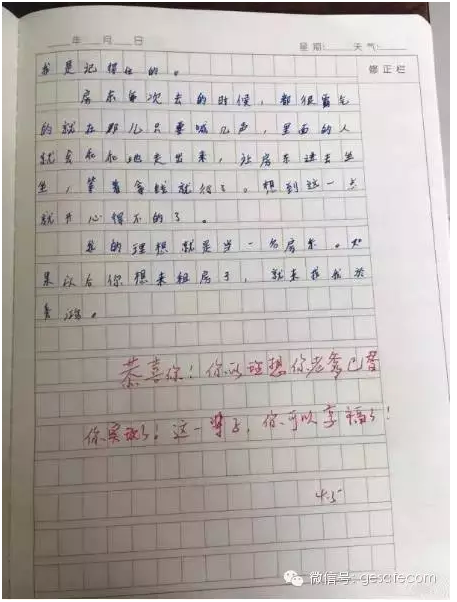 年 月 日 星期: 天气:
修正栏
我是记得住的。
房东每次去的时候，都很霸气
的就在那儿只要喊几声，里面的人
就会和和地走出来，让房东进去坐
坐，等着拿钱就行了。想到这一点
就开心得不的了。
我的理想就是当一名房东。如
果以后你想来租房子，就来找我
恭喜你！你的理想你老爹已替
你实现了！这一辈子，你可以享福了！
4.5
微信号: gescife.com